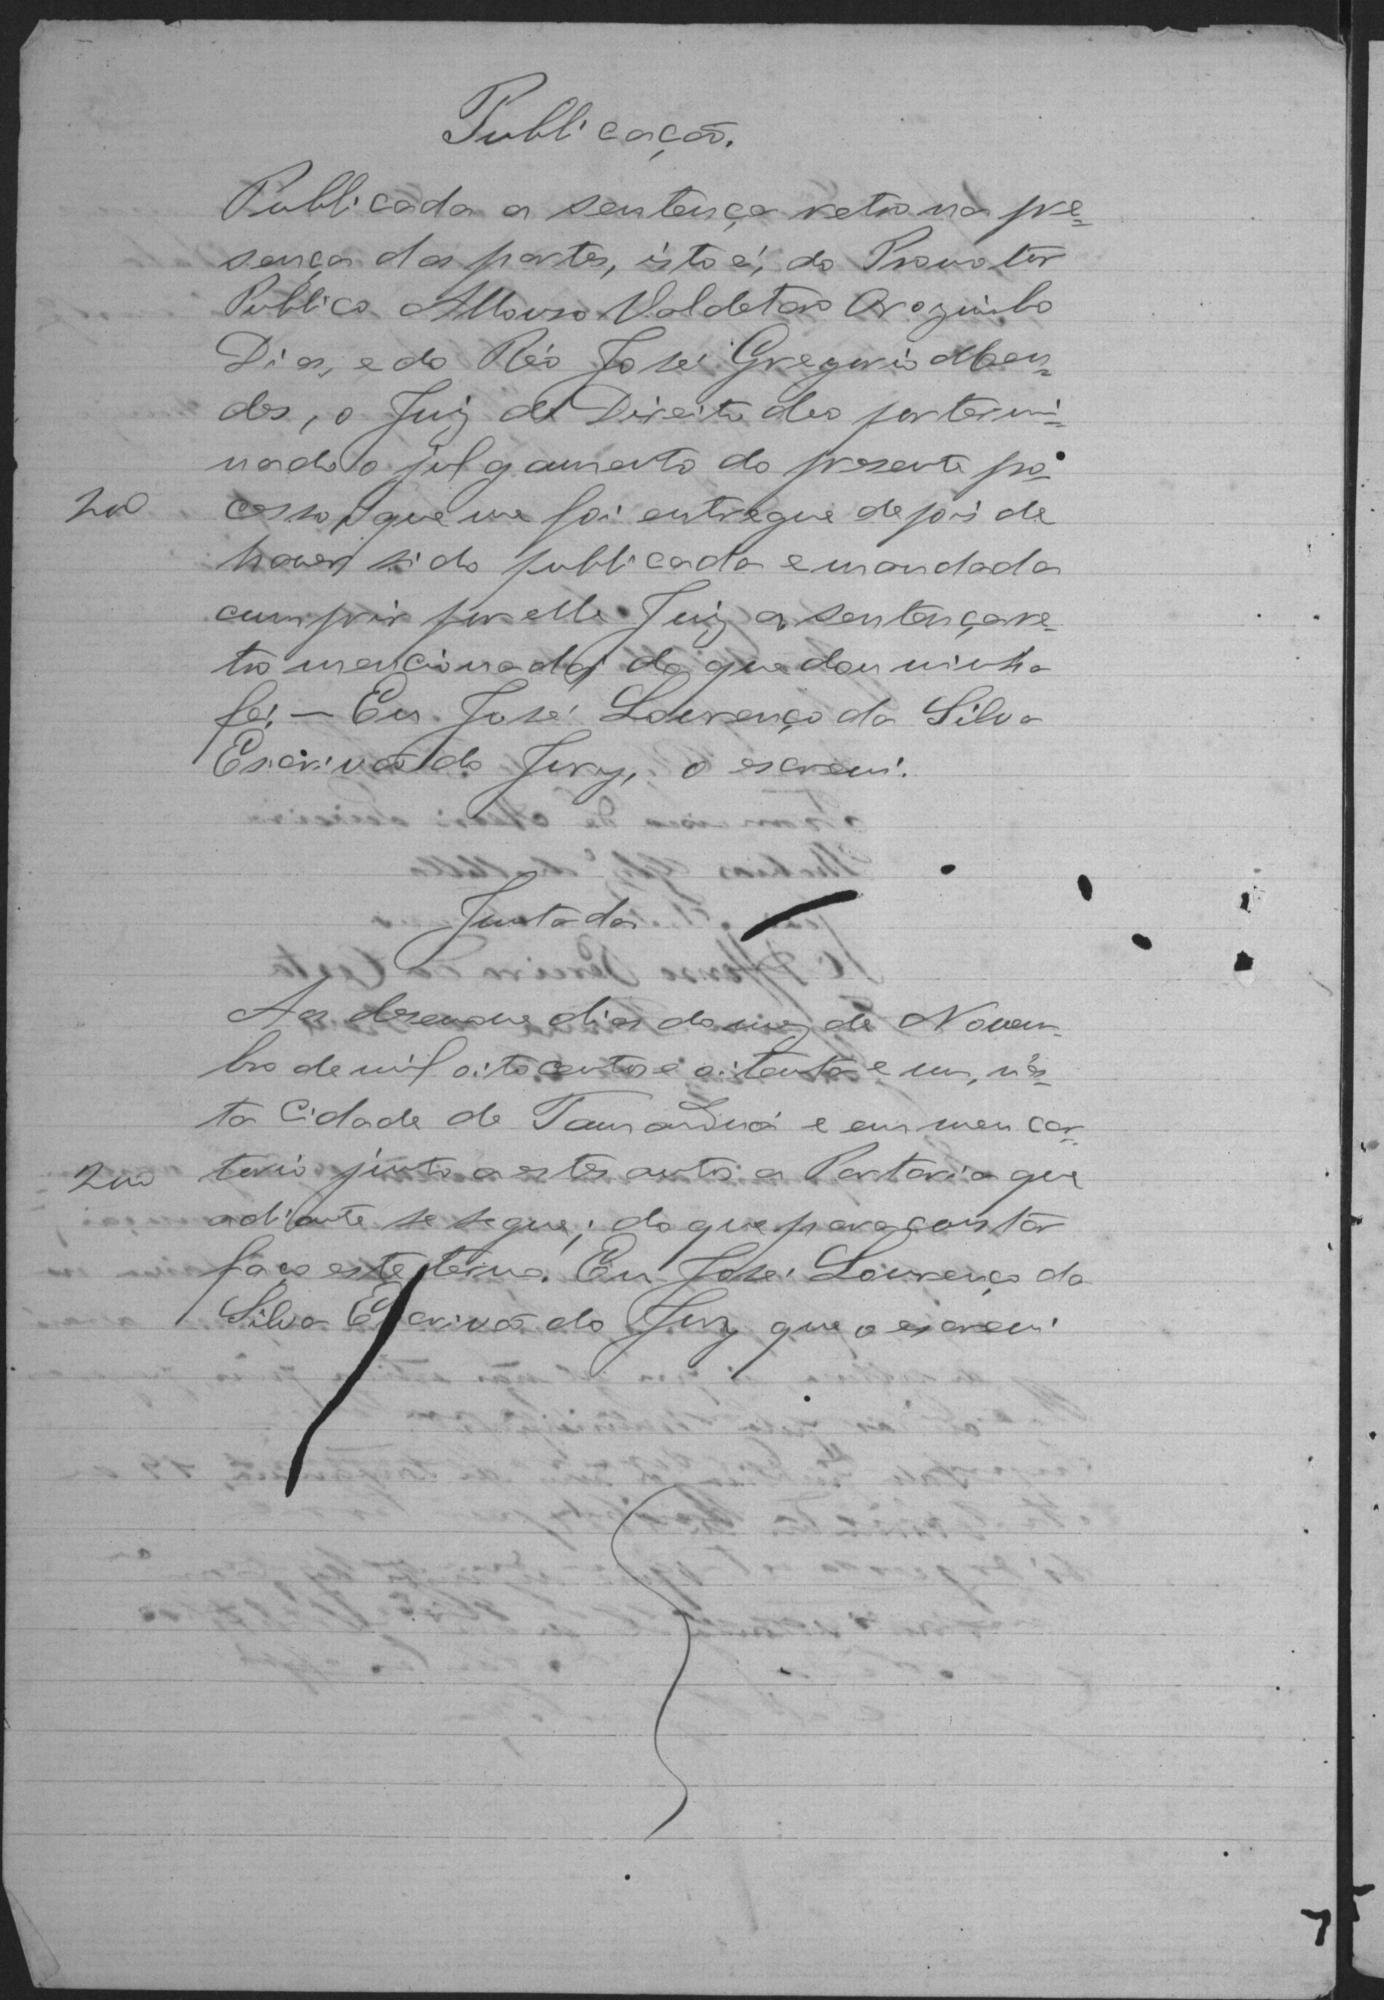 Publicação.
Publicada a sentença retro na pre=
sença das partes, isto é, do Promotor
Publico Affonso Valdetaro Orozimbo
Dias, e do Réo José Gregorio Men=
des, o Juiz de Direito deo por termi=
nado o julgamento do presente pro=
200 cesso, que me foi entregue depois de
haver sido publicada e mandada
cumprir por elle Juiz a sentença re=
tro mencionada; do que dou minha
fé. — Eu José Lourenço da Silva
Escrivão do Jury, o escrevi.
Juntada
Aos desenove dias do mez de Novem-
bro de mil oitocentos e oitenta e um, nes=
ta Cidade de Tamanduá e em meu car=
200 torio junto a estes autos a Portaria que
adiante se segue; do que para constar
faço este termo. Eu José Lourenço da
Silva Escrivão do Jury que o escrevi